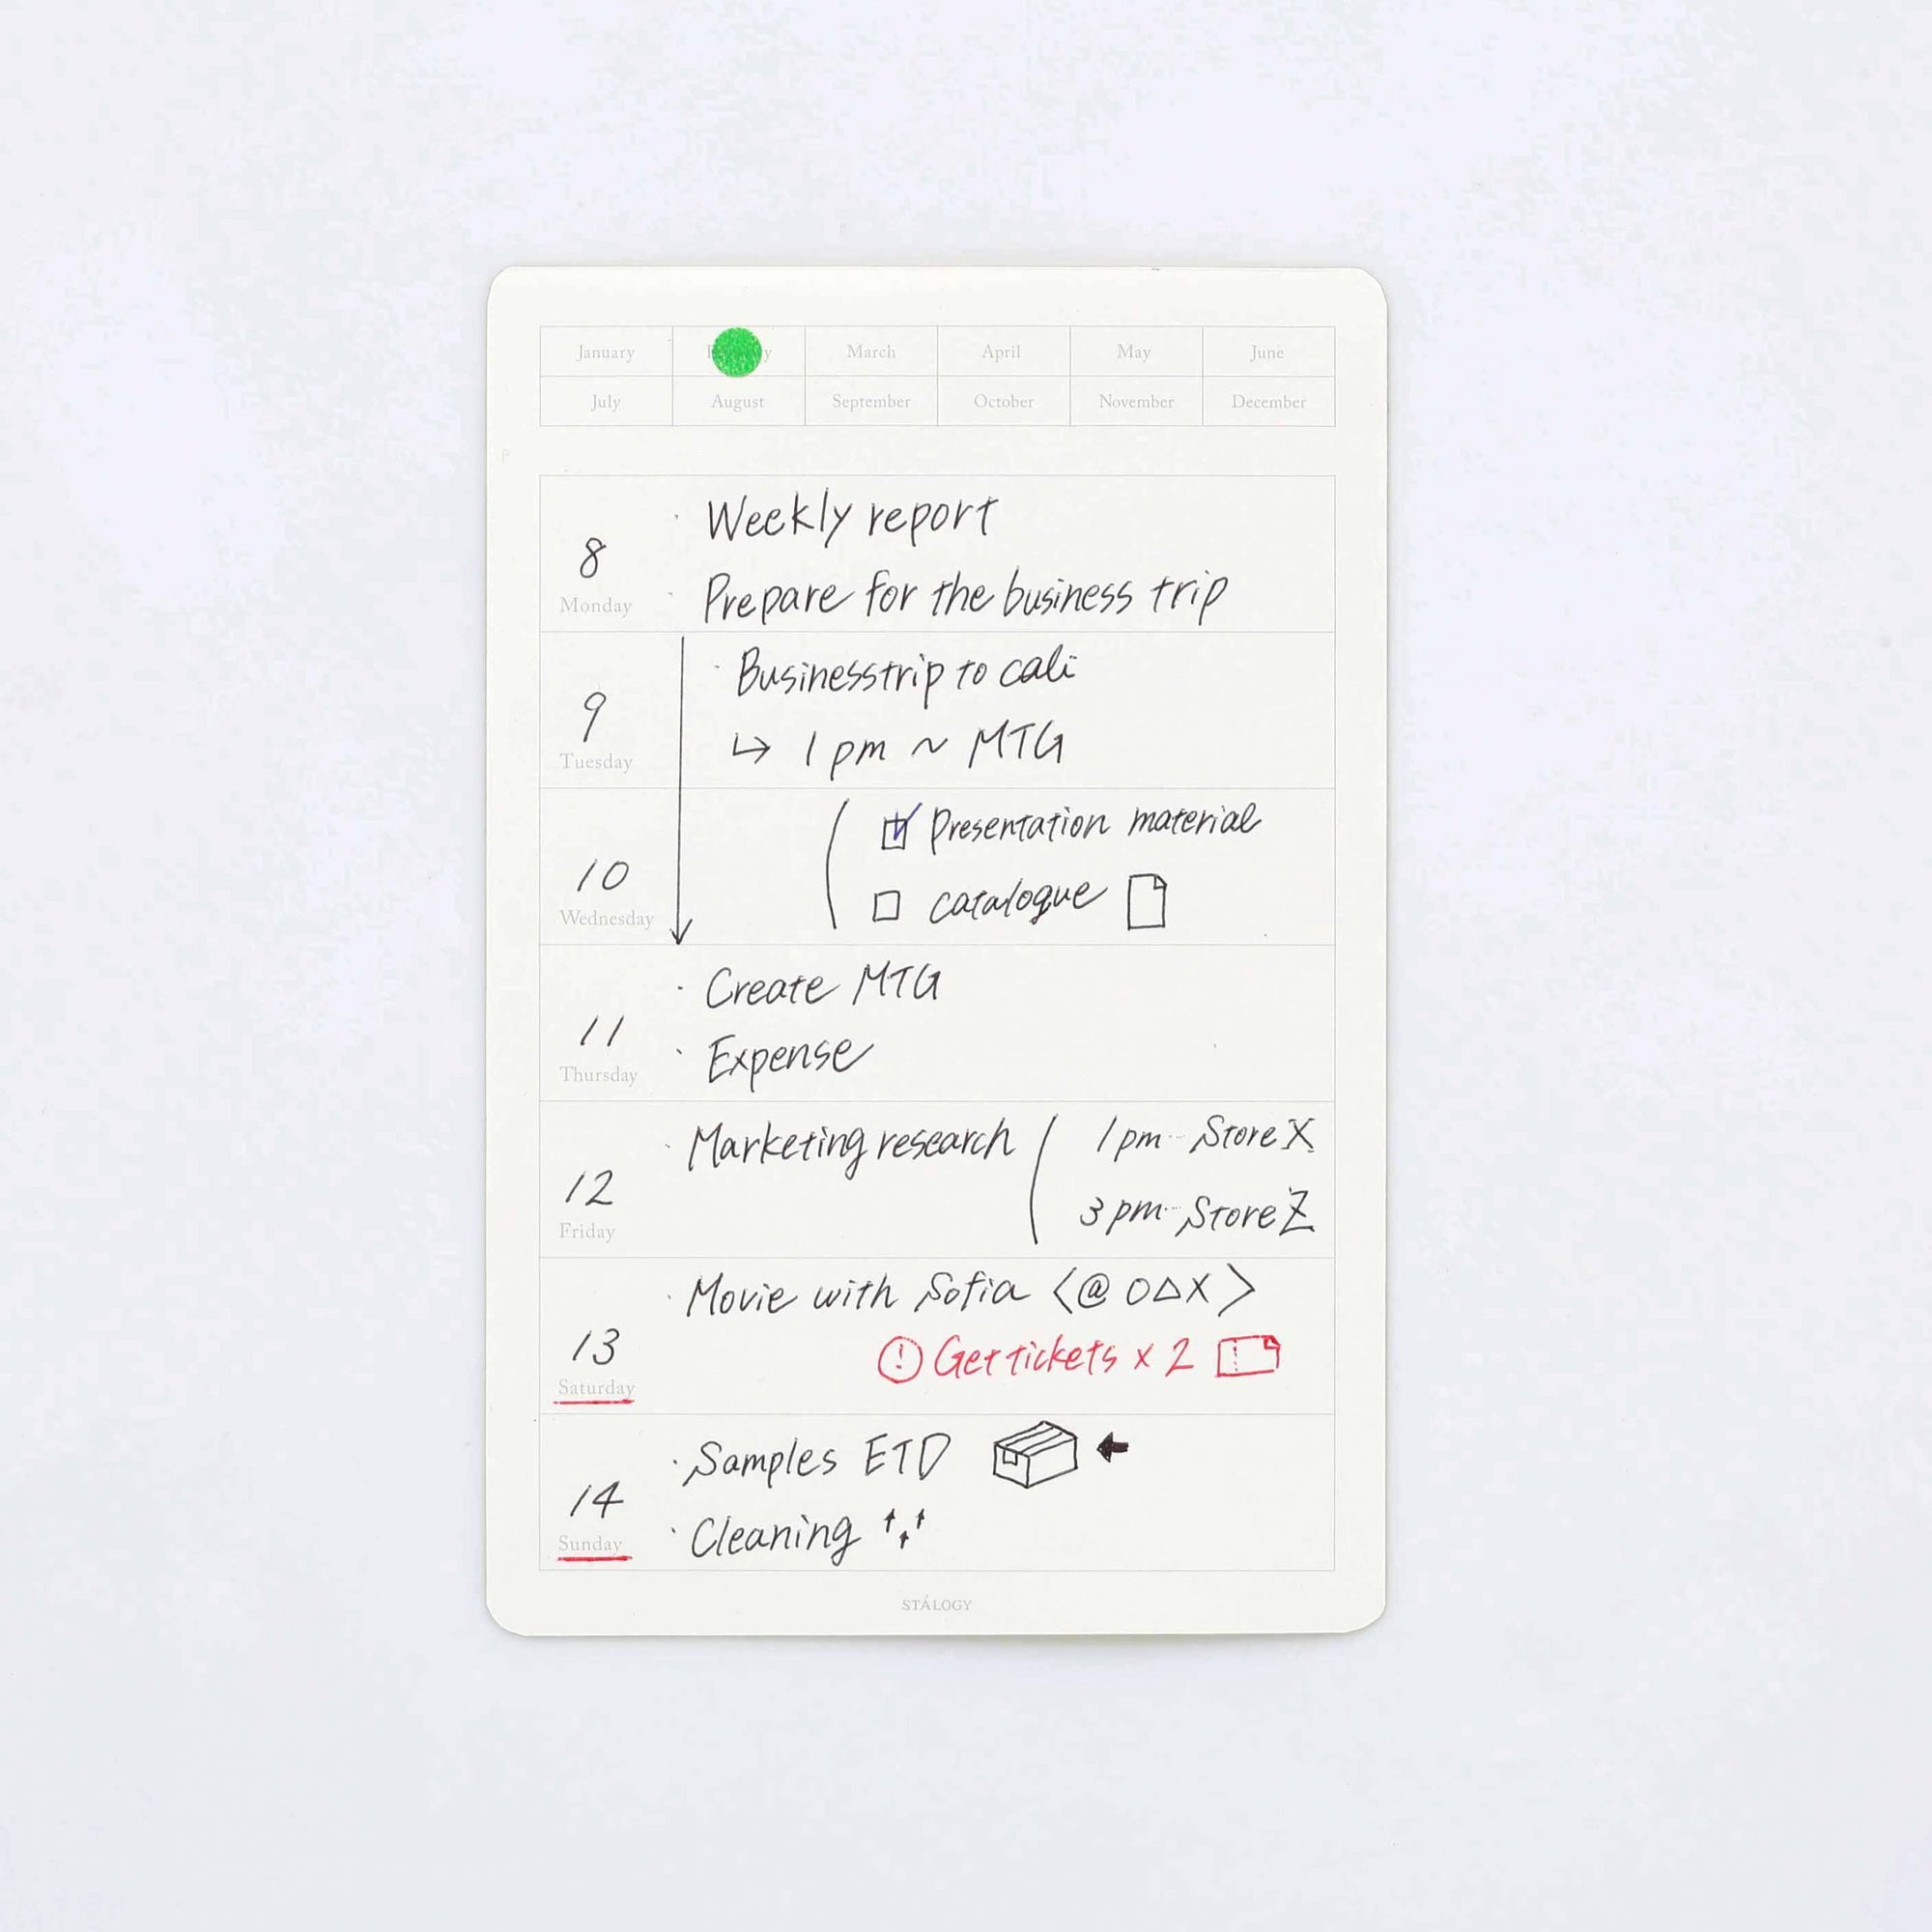 January March April May June
July August September October November December
Weekly report
Prepare for the business trip
8
Monday
Businesstrip to cali
↳ 1pm ~ MTG
9
Tuesday
☑ Presentation material
☐ catalogue
10
Wednesday
・Create MTG
・Expense
11
Thursday
・Marketing research ( 1pm - Store X
3pm - Store Z
12
Friday
・Movie with Sofia <@ ○△X>
! Get tickets x 2
13
Saturday
・Samples ETD ←
・Cleaning
14
Sunday
STÁLOGY